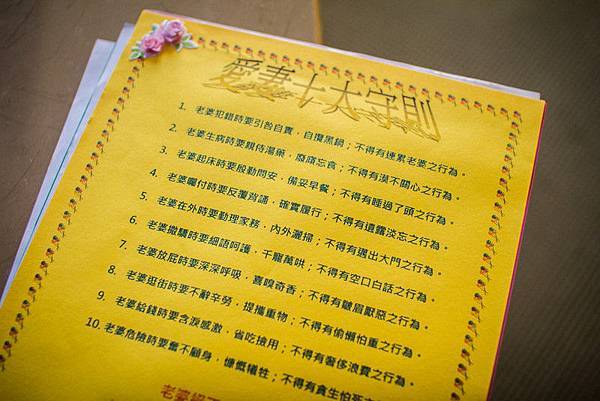 愛妻十大守則
1. 老婆犯錯時要引咎自責，自攬黑鍋；不得有連累老婆之行為。
2. 老婆生病時要親侍湯藥，廢寢忘食；不得有漠不關心之行為。
3. 老婆起床時要殷勤問安，備妥早餐；不得有睡過了頭之行為。
4. 老婆囑付時要反覆背誦，確實履行；不得有遺露淡忘之行為。
5. 老婆在外時要勤理家務，內外灑掃；不得有邁出大門之行為。
6. 老婆撒驕時要細語呵護，千寵萬哄；不得有空口白話之行為。
7. 老婆放屁時要深深呼吸，喜嗅奇香；不得有皺眉厭惡之行為。
8. 老婆逛街時要不辭辛勞，提攜重物；不得有偷懶怕重之行為。
9. 老婆給錢時要含淚感激，省吃儉用；不得有奢侈浪費之行為。
10. 老婆危險時要奮不顧身，慷慨犧牲；不得有貪生怕死
老婆絕